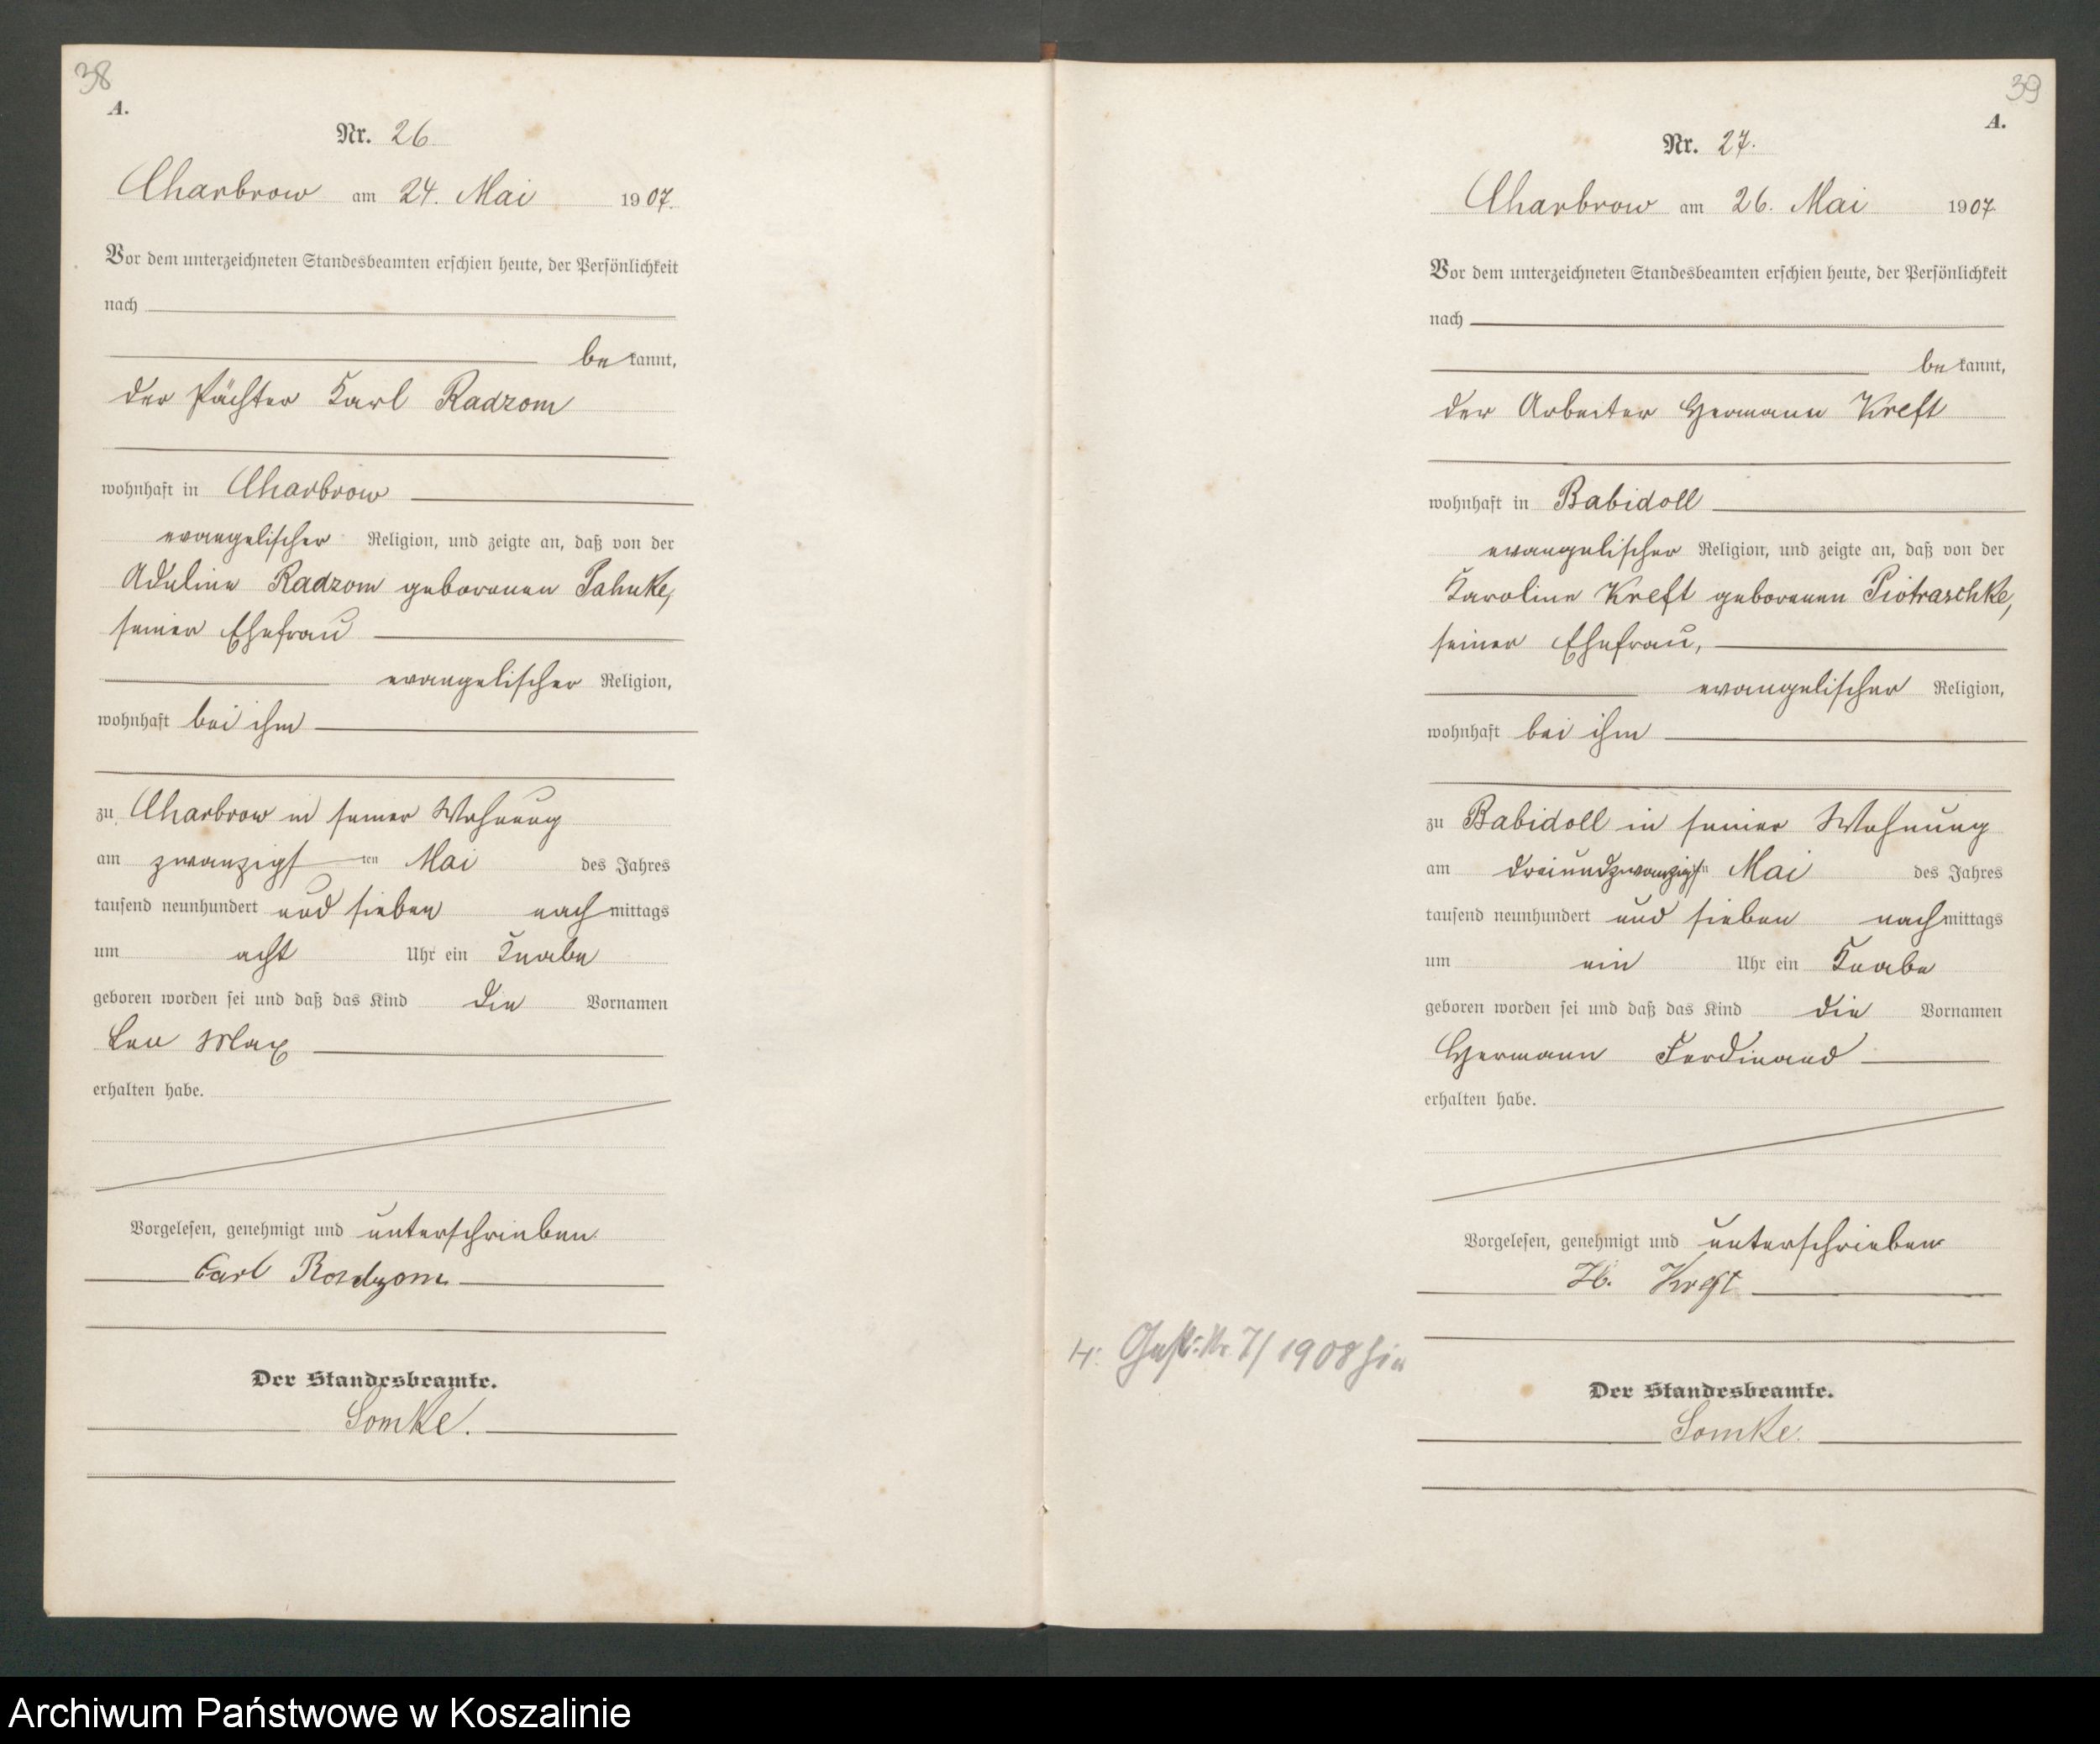 38
A.
Nr. 26
Charbrow am 24. Mai 1907.
Vor dem unterzeichneten Standesbeamten erschien heute, der Persönlichkeit
nach
bekannt,
der Pächter Karl Radzom
wohnhaft in Charbrow
evangelischer Religion, und zeigte an, daß von der
Adeline Radzom geborenen Jahnke,
seiner Ehefrau
evangelischer Religion,
wohnhaft bei ihm
zu Charbrow in seiner Wohnung
am zwanzigsten Mai des Jahres
tausend neunhundert und sieben nachmittags
um acht Uhr ein Knabe
geboren worden sei und daß das Kind die Vornamen
Leo Max
erhalten habe.
Vorgelesen, genehmigt und unterschrieben.
Carl Radzom
Der Standesbeamte.
Somke.
39
A.
Nr. 27.
Charbrow am 26. Mai 1907
Vor dem unterzeichneten Standesbeamten erschien heute, der Persönlichkeit
nach
bekannt,
der Arbeiter Hermann Kreft
wohnhaft in Babidoll
evangelischer Religion, und zeigte an, daß von der
Karoline Kreft geborenen Piotraschke,
seiner Ehefrau,
evangelischer Religion,
wohnhaft bei ihm
zu Babidoll in seiner Wohnung
am dreiundzwanzigsten Mai des Jahres
tausend neunhundert und sieben nachmittags
um ein Uhr ein Knabe
geboren worden sei und daß das Kind die Vornamen
Hermann Ferdinand
erhalten habe.
Vorgelesen, genehmigt und unterschrieben
H. Kreft
Nr. 7/1908 hier
Der Standesbeamte.
Somke.
Archiwum Państwowe w Koszalinie